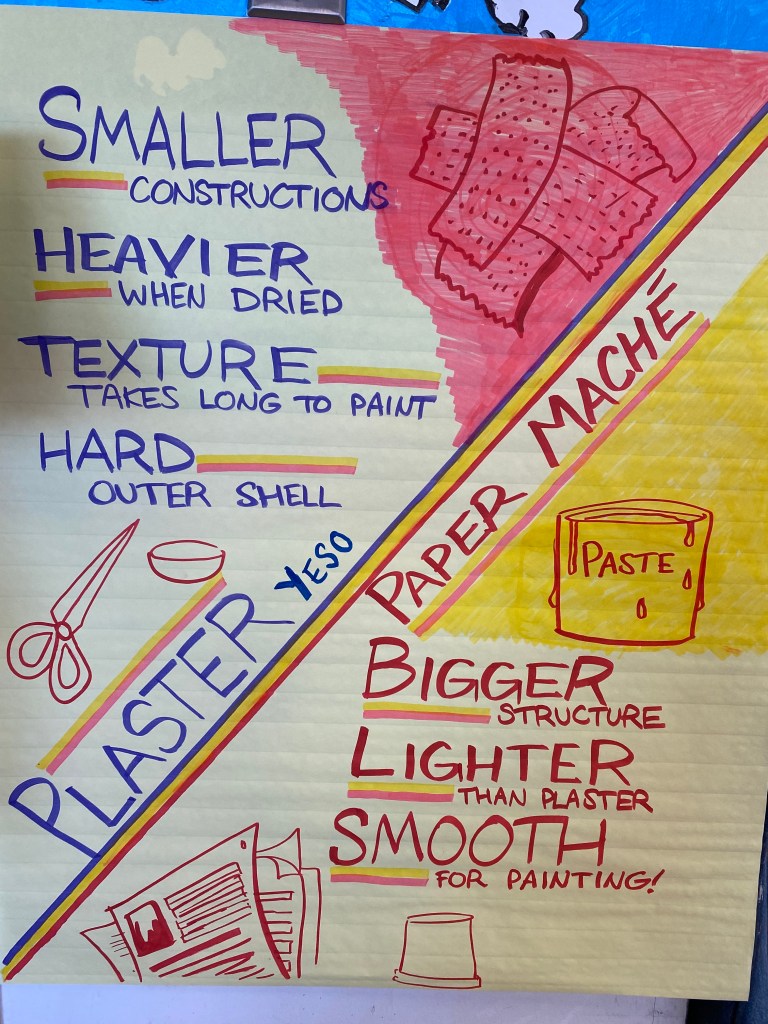 SMALLER
CONSTRUCTIONS
HEAVIER
WHEN DRIED
TEXTURE
TAKES LONG TO PAINT
HARD
OUTER SHELL
PLASTER YESO
PAPER MACHÉ
PASTE
BIGGER
STRUCTURE
LIGHTER
THAN PLASTER
SMOOTH
FOR PAINTING!